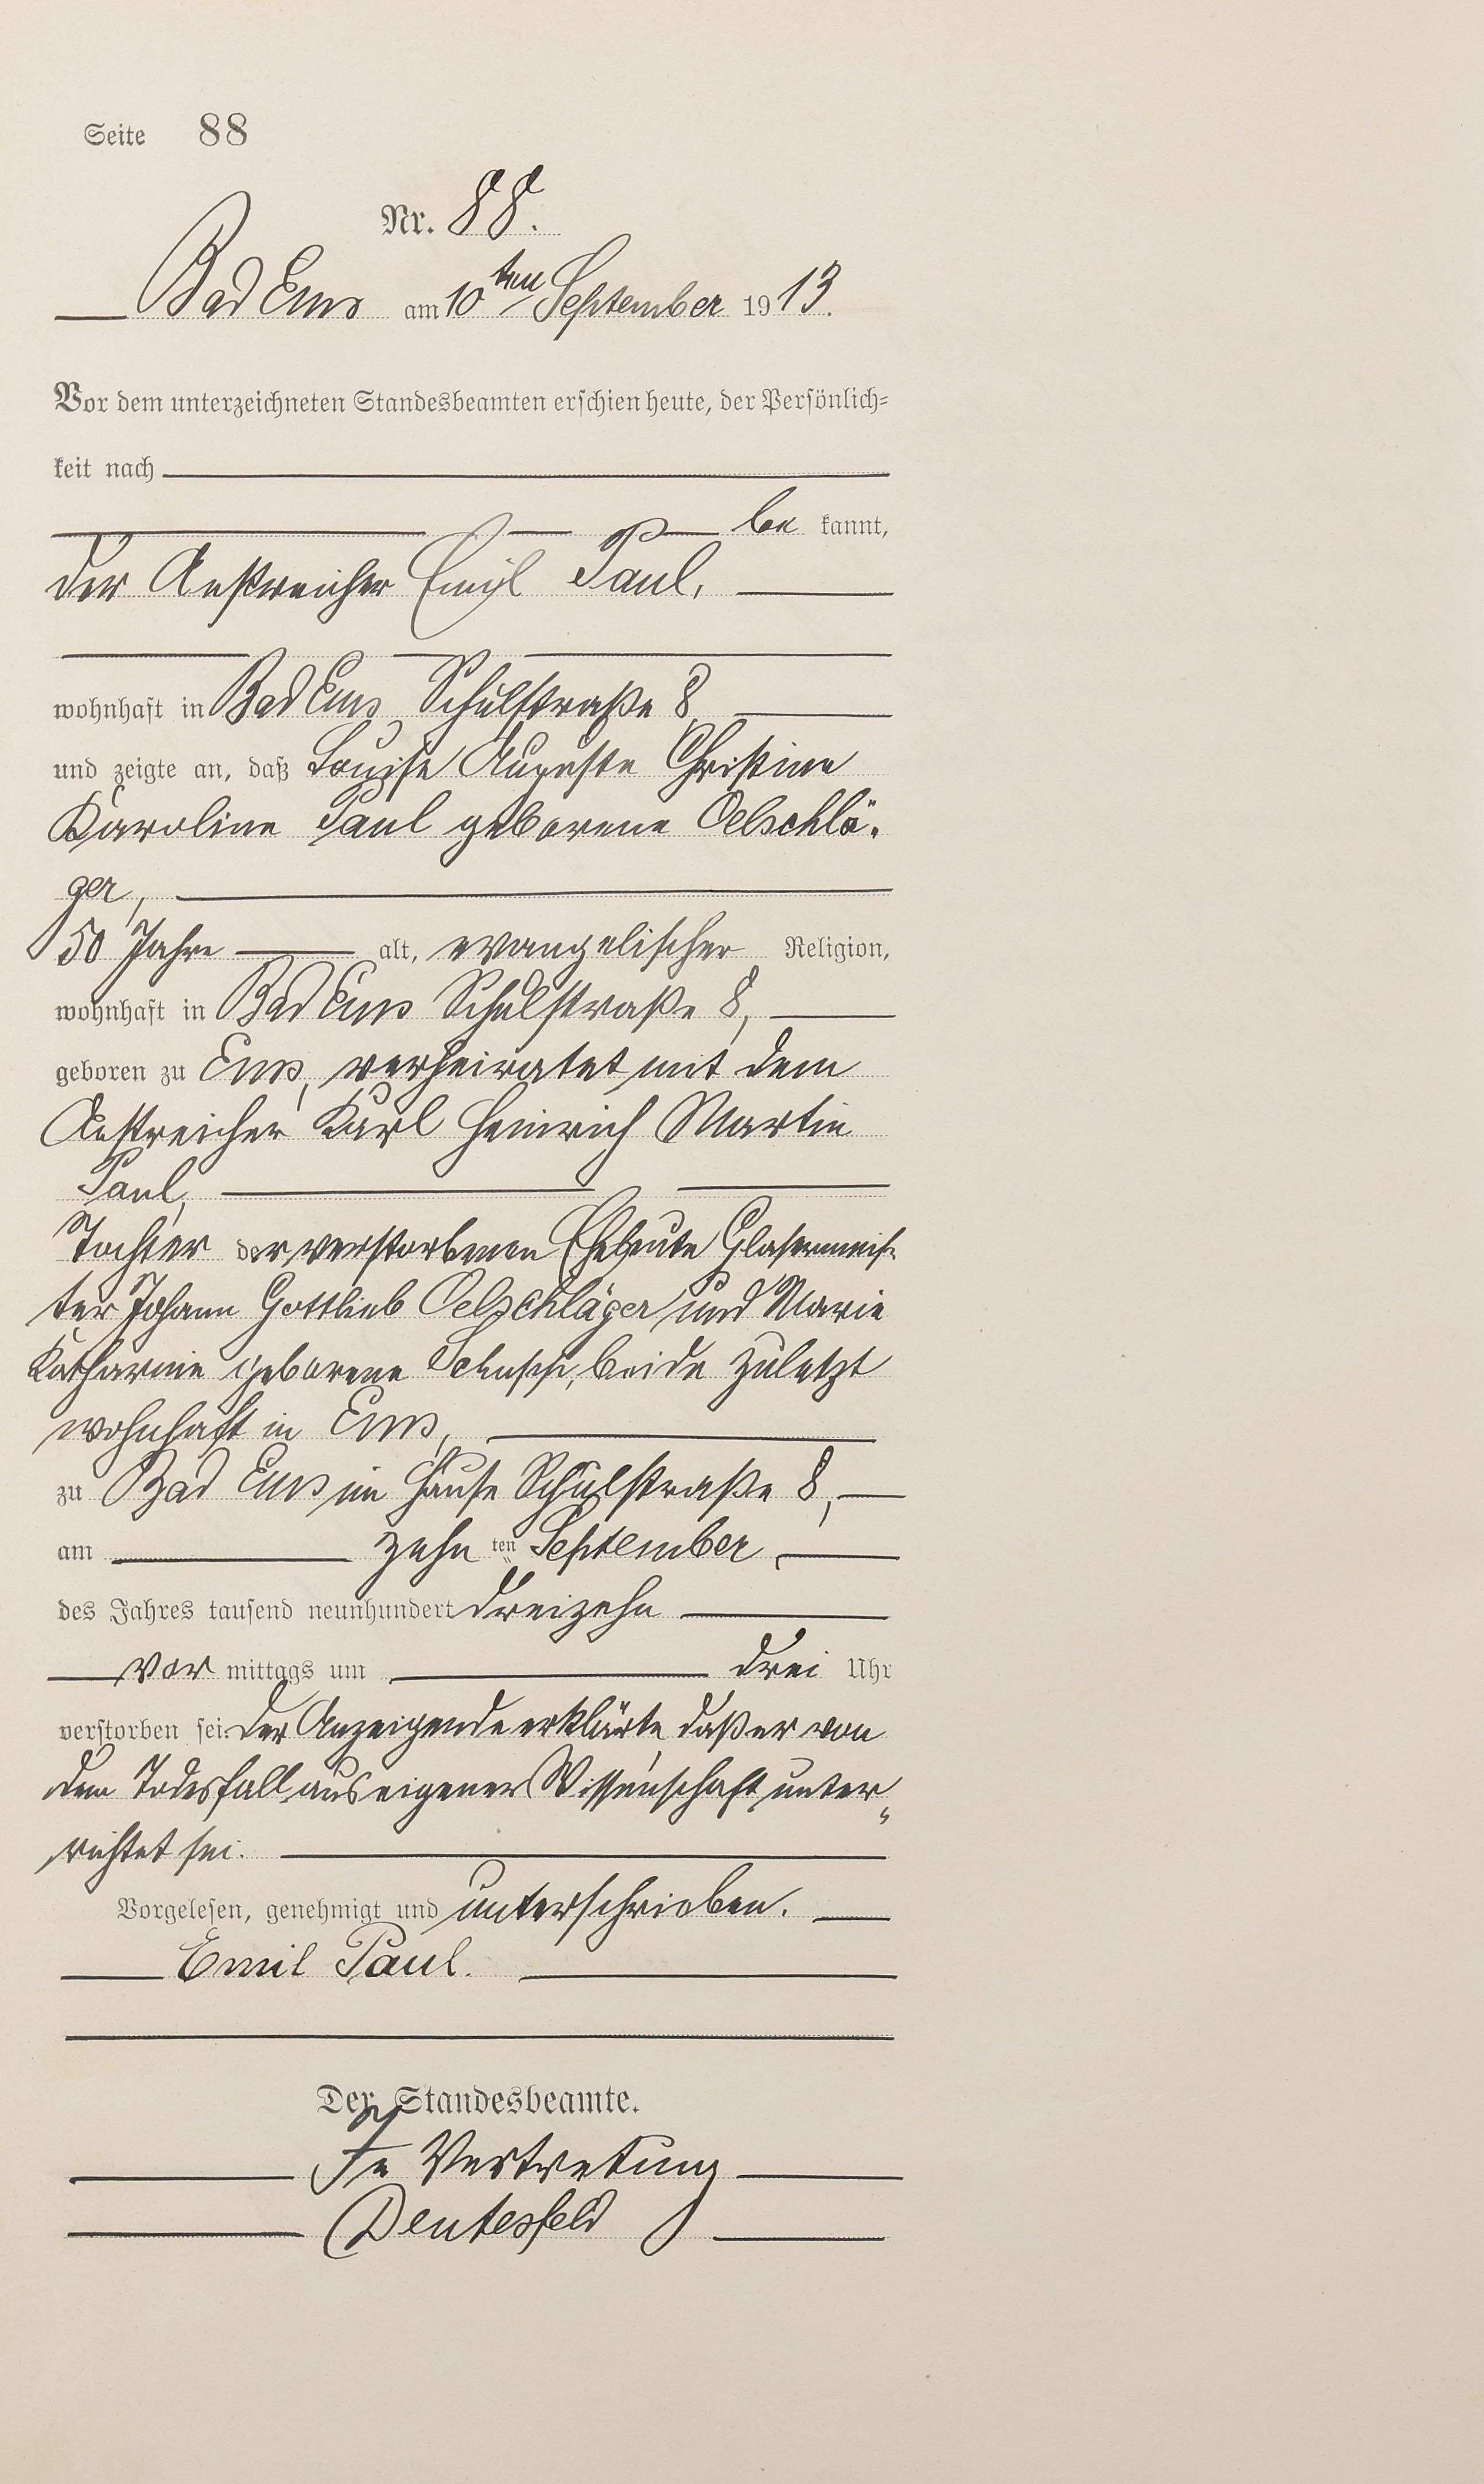 Seite 88
Nr. 88.
Bad Ems am 10ten September 1913.
Vor dem unterzeichneten Standesbeamten erschien heute, der Persönlich=
keit nach
be kannt,
der Anstreicher Emil Paul,
wohnhaft in Bad Ems Schulstraße 8
und zeigte an, daß Louise Auguste Christine
Karoline Paul geborene Oelschlä-
ger,
50 Jahre alt, evangelischer Religion,
wohnhaft in Bad Ems Schulstraße 8,
geboren zu Ems, verheiratet mit dem
Anstreicher Karl Heinrich Martin
Paul,
Tochter der verstorbenen Eheleute Glasermeis-
ter Johann Gottlieb Oelschläger und Marie
Katharine geborene beide zuletzt
wohnhaft in Ems,
zu Bad Ems im Hause Schulstraße 8,
am zehn ten September
des Jahres tausend neunhundert dreizehn
vor mittags um drei Uhr
verstorben sei. Der Anzeigende erklärte, daß er von
dem Todesfall aus eigener Wissenschaft unter„
richtet sei.
Vorgelesen, genehmigt und unterschrieben.
Emil Paul.
Der Standesbeamte.
In Vertretung